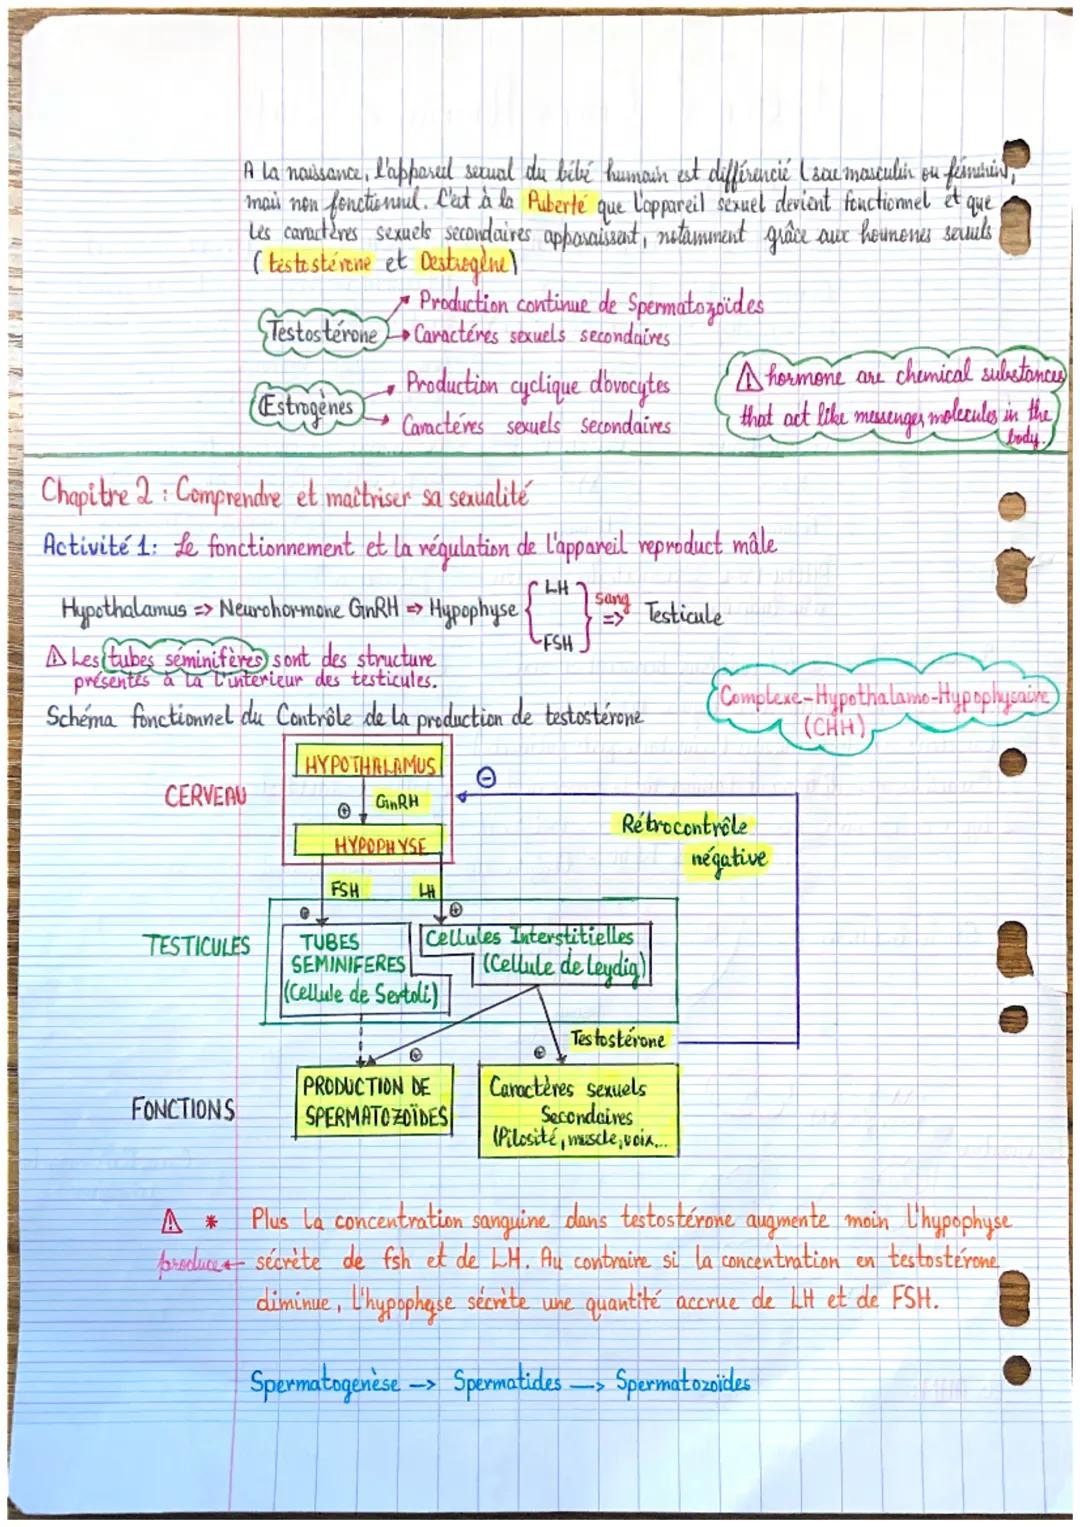 A la naissance, l'appareil sexual du bébé humain est différencié (sexe masculin ou féminin),
mais non fonctionnul. C'est à la Puberté que l'appareil sexuel devient fonctionnel et que
les caractères sexuels secondaires apparaissent, notamment grâce aux hormones sexuels
(testostérone et Oestrogène)
Testostérone
Production continue de Spermatozoïdes
Caractéres sexuels secondaires
Œstrogènes
Production cyclique d'ovocytes
Caractéres sexuels Secondaires
⚠ hormone are chemical substances
that act like messenger molecules in the
body.
Chapitre 2 : Comprendre et maîtriser sa sexualité
Activité 1: Le fonctionnement et la régulation de l'appareil reproduct mâle
Hypothalamus => Neurohormone GnRH => Hypophyse { LH FSH } sang => Testicule
⚠ Les tubes séminifères sont des structure
présentes à la l'intérieur des testicules.
Complexe-Hypothalamo-Hypophysaire
(CHH)
Schéma fonctionnel du Contrôle de la production de testostérone
CERVEAU
HYPOTHALAMUS
⊕ GnRH
HYPOPHYSE
⊖
Rétrocontrôle
négative
FSH LH
⊕ ⊕
TESTICULES
TUBES
SEMINIFERES
(Cellule de Sertoli)
Cellules Interstitielles
(Cellule de leydig)
Testostérone
⊕ ⊕
FONCTIONS
PRODUCTION DE
SPERMATOZOÏDES
Caractères sexuels
Secondaires
(Pilosité, muscle, voix...
⚠ * Plus la concentration sanguine dans testostérone augmente moin l'hypophyse
produce ← sécrète de fsh et de LH. Au contraire si la concentration en testostérone
diminue, l'hypophyse sécrète une quantité accrue de LH et de FSH.
Spermatogenèse --> Spermatides --> Spermatozoïdes